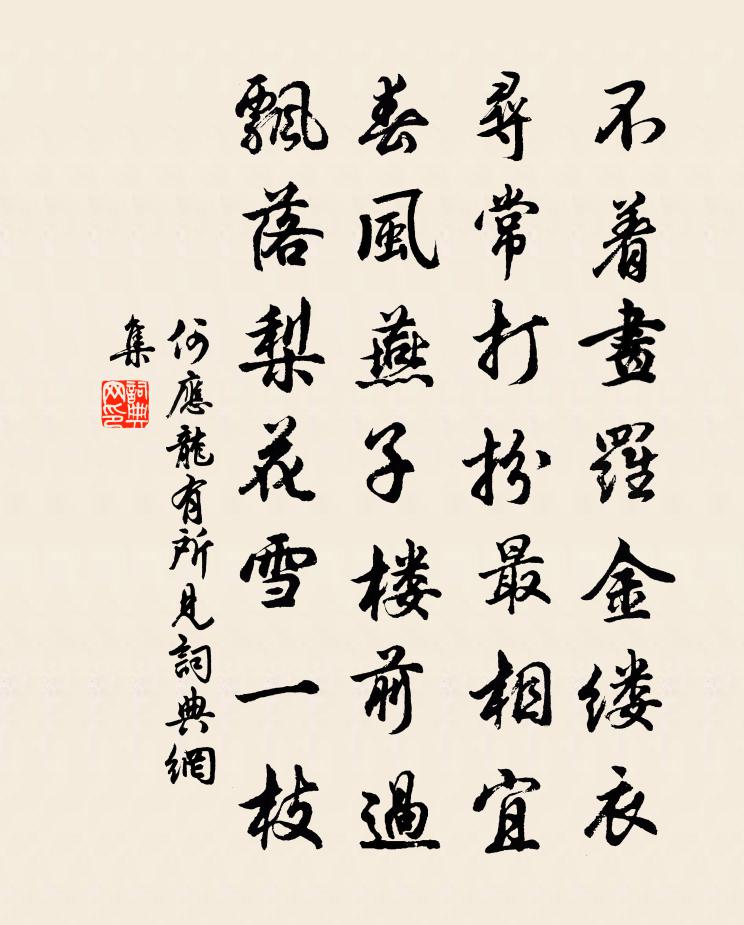 不着畫羅金缕衣
尋常打扮最相宜
春風燕子楼前過
飄落梨花雪一枝
何應龍有所見詞典網
集
詞典
网印